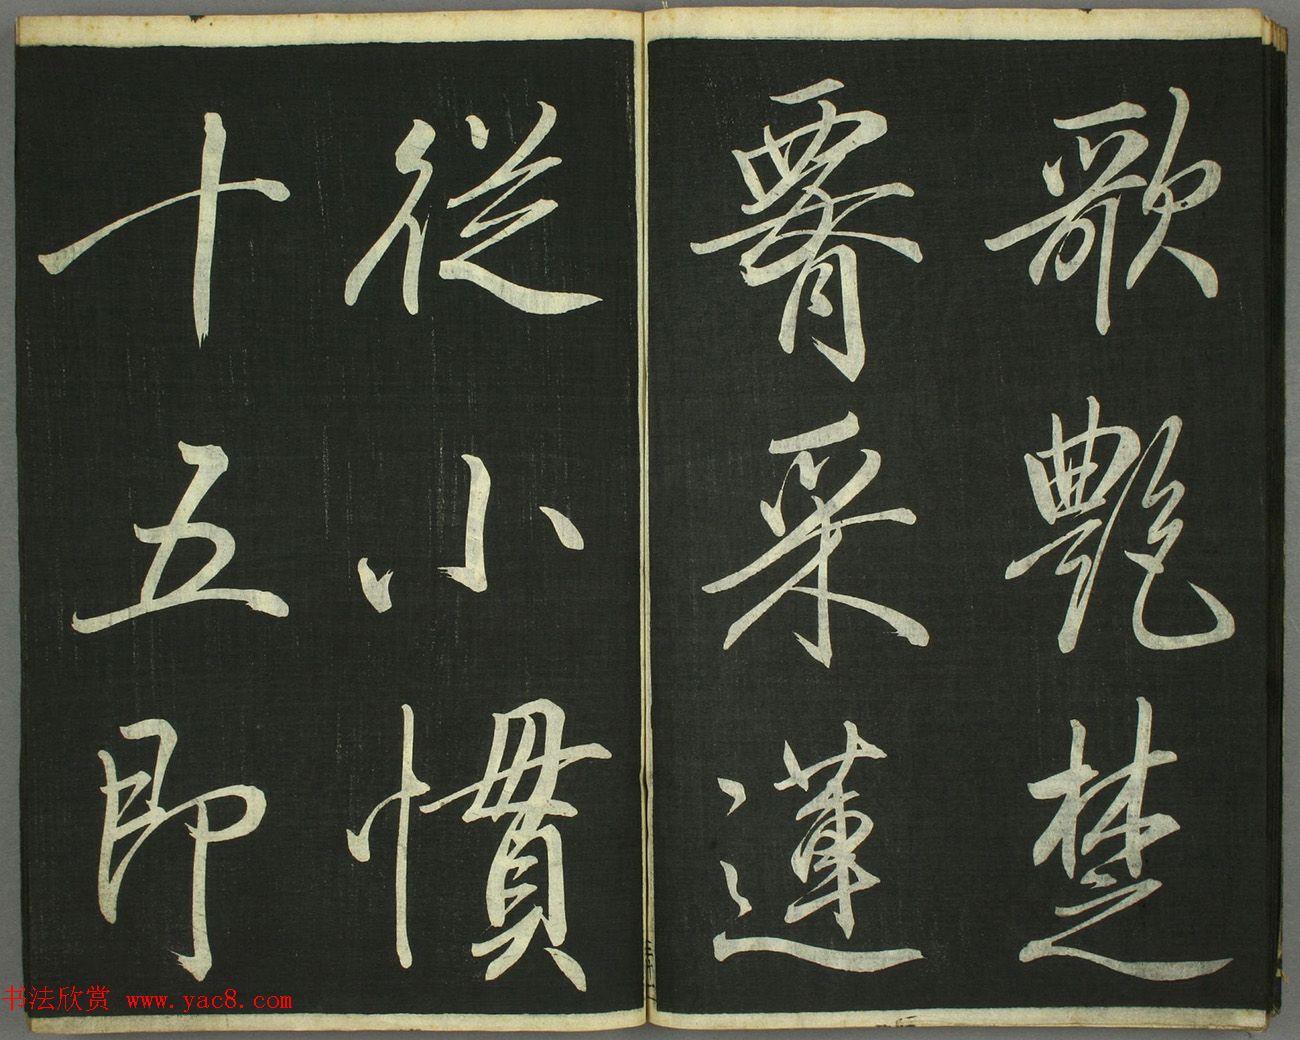 歌艷楚
腰采蓮
從小慣
十五即
书法欣赏 www.yac8.com